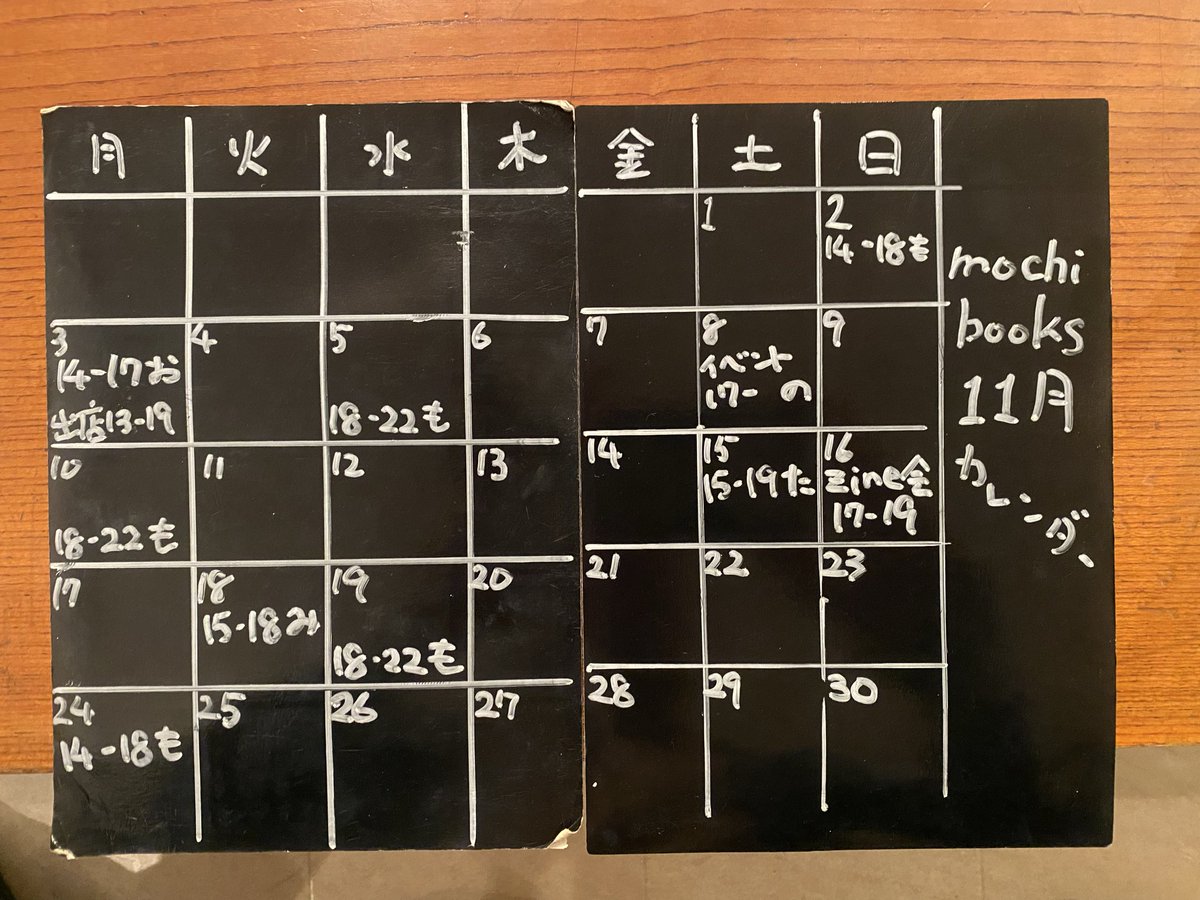 月 火 水 木 金 土 日
1
2
14-18も
3
14-17お
出店13-19
4
5
18-22も
6
7
8
イベント
17- の
9
10
18-22も
11
12
13
14
15
15-19た
16
Zine会
17-19
17
18
15-18み
19
18-22も
20
21
22
23
24
14-18も
25
26
27
28
29
30
mochi
books
11月
カレンダー